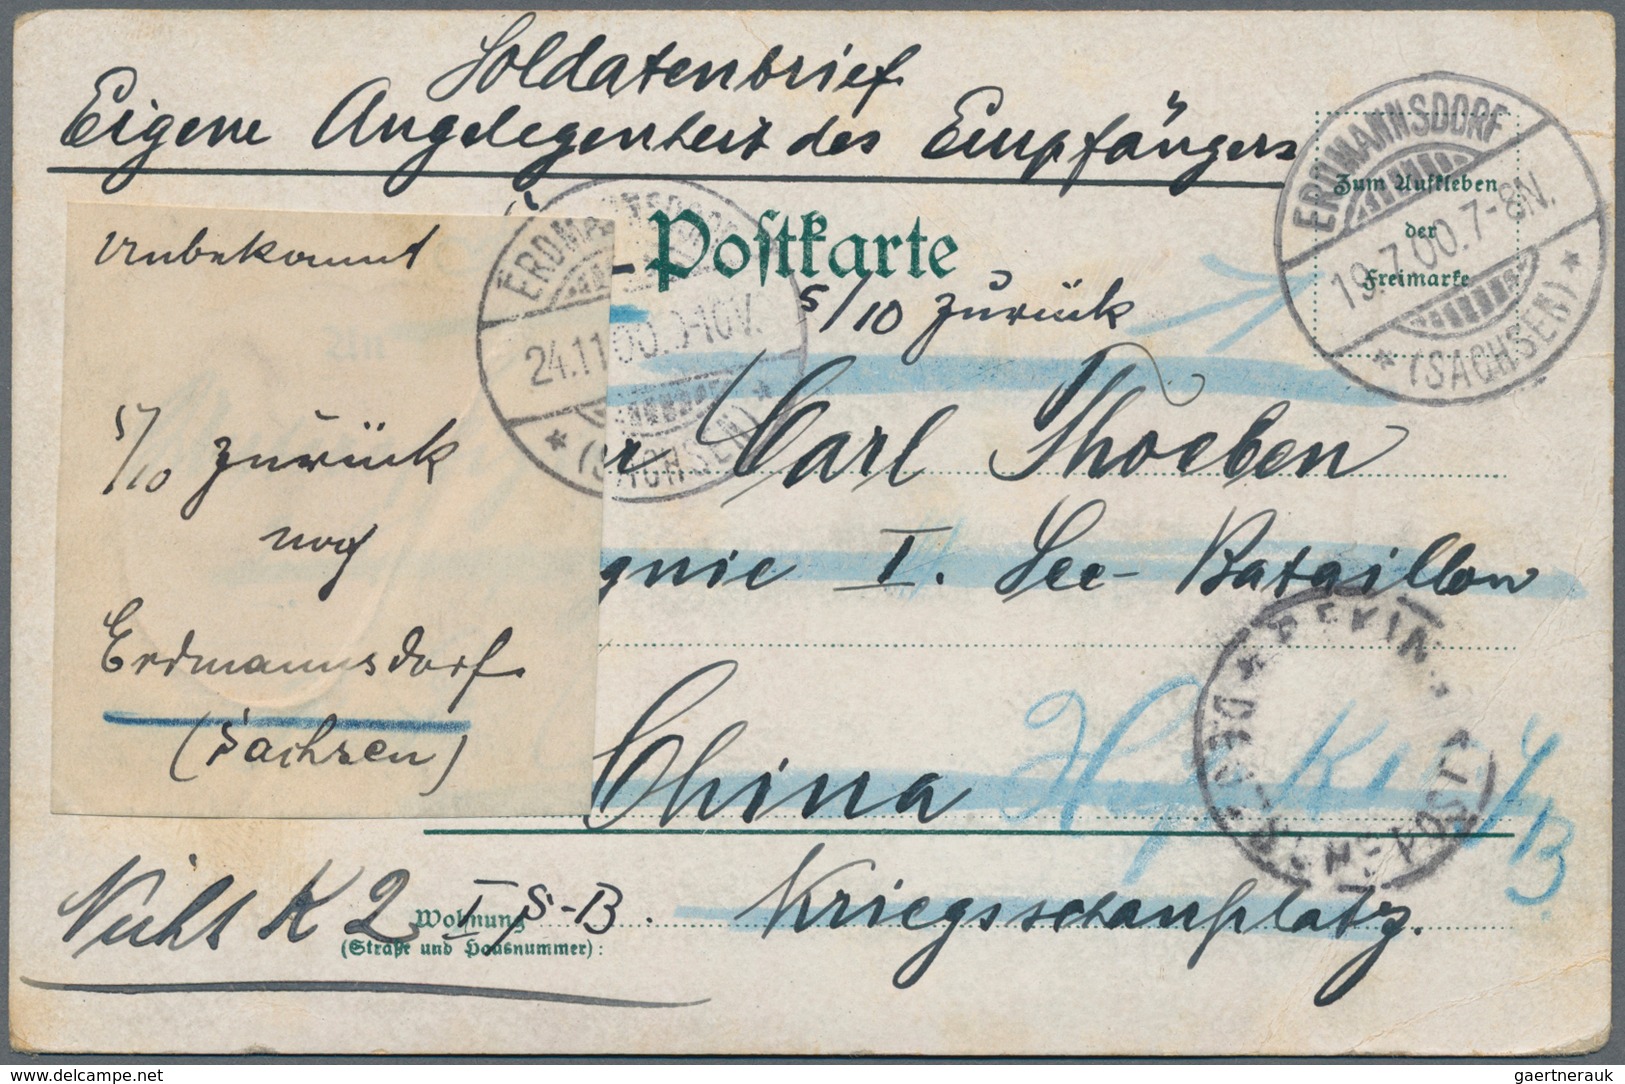 Soldatenbrief
Eigene Angelegenheit des Empfängers
Postkarte
ERDMANNSDORF
19.7.00.7-8N.
* (SACHSEN) *
Zum Aufkleben
der
Freimarke
ERDMANNSDORF
24.11.00.9-10V.
* (SACHSEN) *
Unbekannt
5/10 zurück
nach
Erdmannsdorf
(Sachsen)
5/10 zurück
r Carl Thoeben
gnie I. See-Bataillon
China
Kriegsschauplatz.
PEKING
DEUTSCHE POST
Nicht K 2 I S-B.
Wohnung
(Straße und Hausnummer):
www.delcampe.net
gaertnerauk